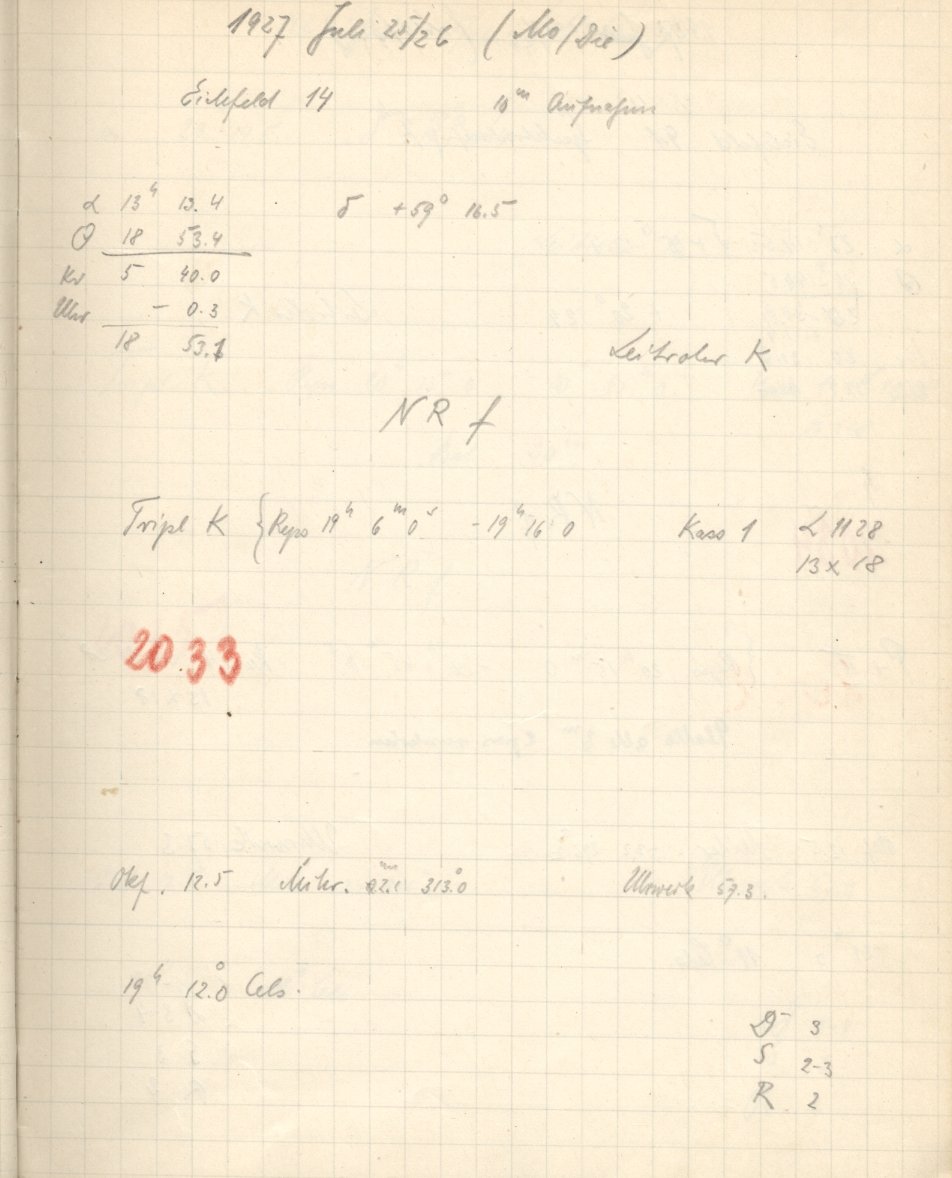 1927 Juli 25/26 (Mo/Die)
Eichfeld 14 10ᵐ Aufnahmen
α 13ʰ 13.4 δ +59° 16.5
Θ 18 53.4
Kw 5 40.0
Uhr - 0.3
18 53.1
Leitrohr K
NR f
Tripl K { Repo 19ʰ 6ᵐ 0ˢ - 19ʰ 16 0 Kass 1 L 1128
13 x 18
2033
Okf. 12.5 Mikr. 313.0 Uhrwerk 59.3.
19ʰ 12.0° Cels.
D 3
S 2-3
R 2